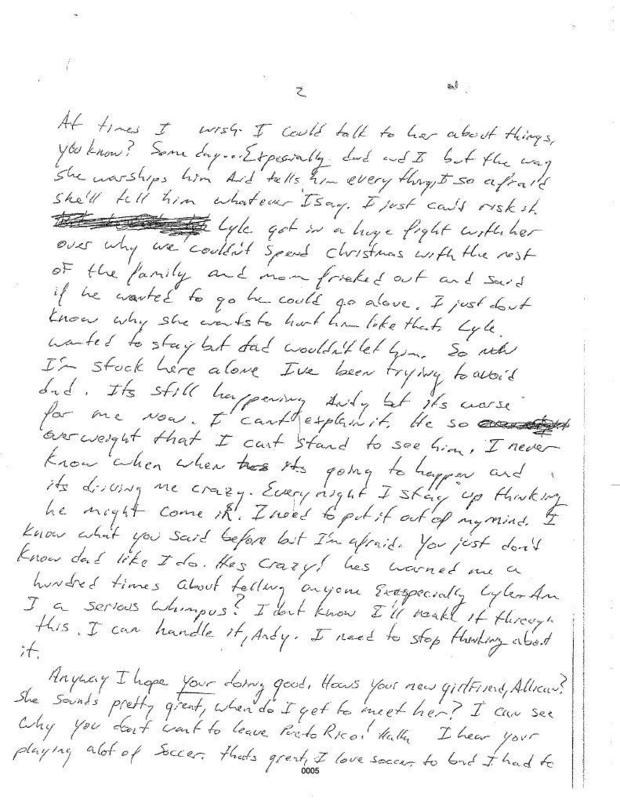 2
At times I wish I could talk to her about things,
you know? Some day... Expecially dad and I but the way
she worships him and tells him everything, I so afraid
she'll tell him whatever I say. I just can't risk it.
Lyle got in a huge fight with her
over why we couldn't spend christmas with the rest
of the family and mom friaked out and said
if he wanted to go he could go alone. I just dont
know why she wants to hurt him like that. Lyle
wanted to stay but dad wouldn't let him. So now
I'm stuck here alone I've been trying to avoid
dad. Its still happening Andy but its worse
for me now. I cant explain it. He so
overweight that I cant stand to see him. I never
know when when its going to happen and
its driving me crazy. Every night I stay up thinking
he might come in. I need to put it out of my mind. I
know what you said before but I'm afraid. You just don't
know dad like I do. Hes crazy! hes warned me a
hundred times about telling anyone Exespecially Lyle. Am
I a serious whimpus? I dont know I'll make it through
this. I can handle it, Andy. I need to stop thinking about
it.
Anyway I hope your doing good. Hows your new girlfriend, Allican?
She sounds pretty great, when do I get to meet her? I can see
why you don't want to leave Puerto Rico! HaHa I hear your
playing alot of Soccer. thats great, I love soccer to but I had to
0005